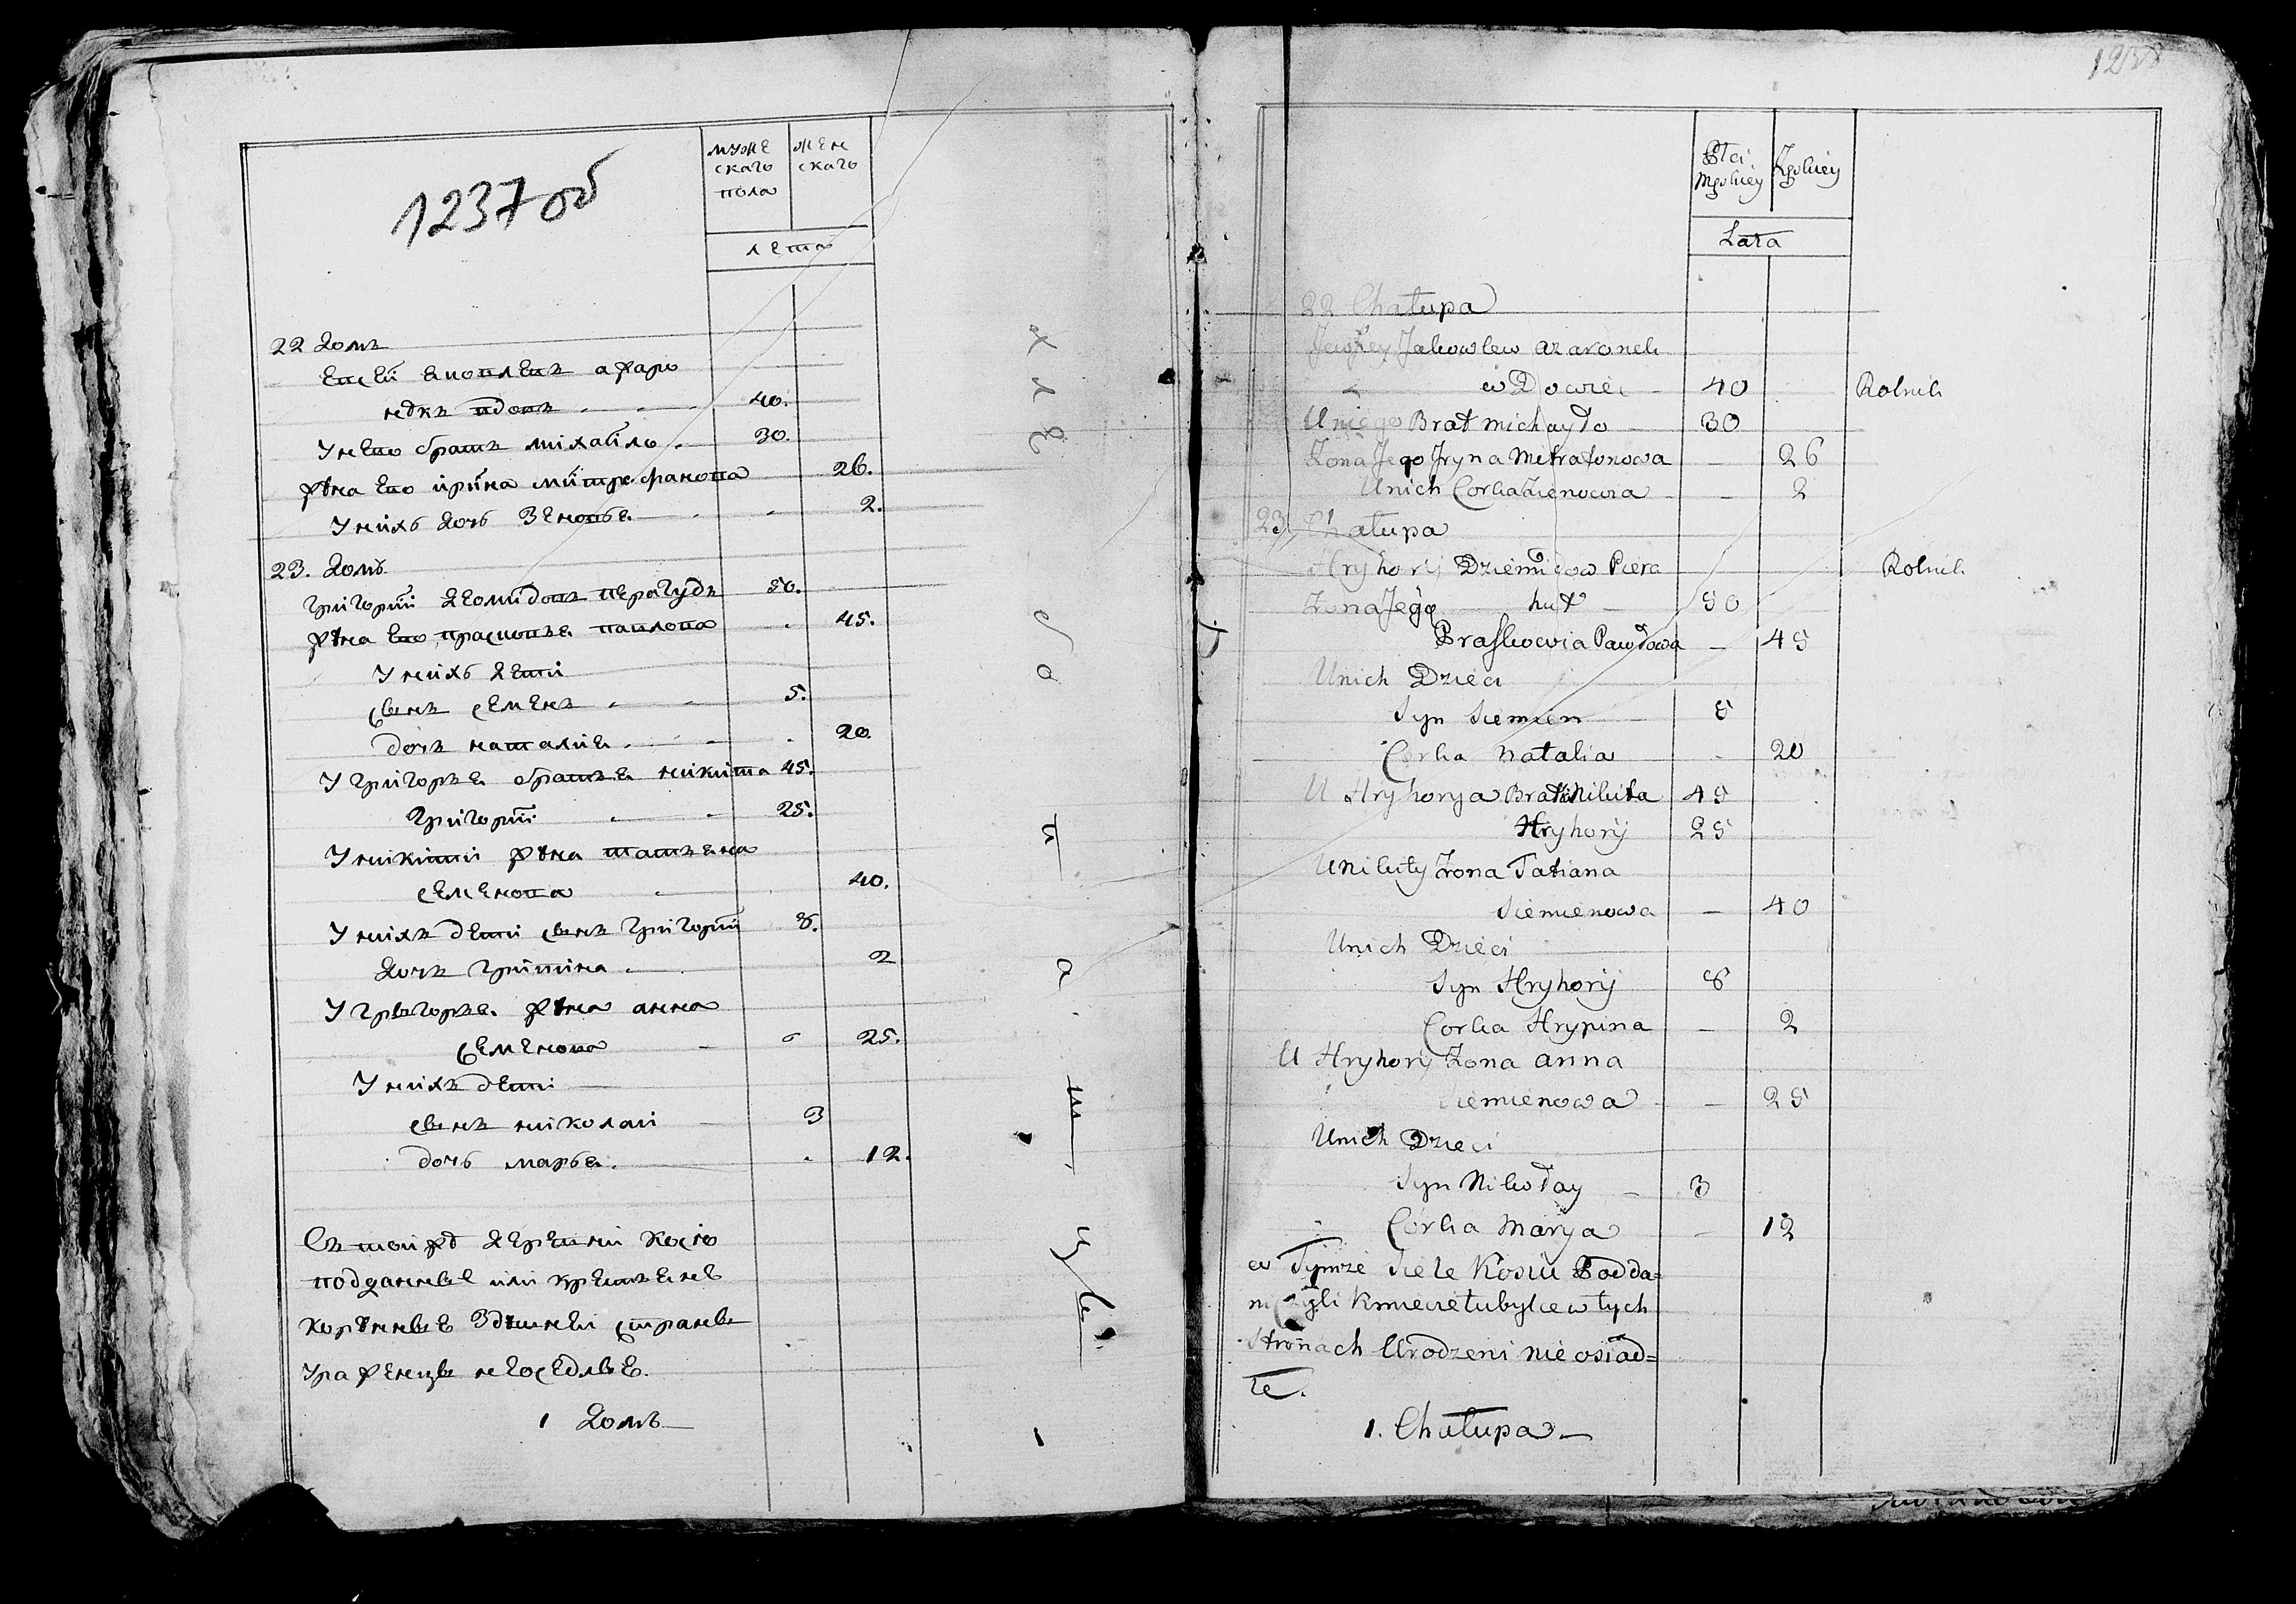 1237 об
муже
скаго
пола
жен
скаго
лета
22 домъ
Евсей Яковлевъ Азаро
нокъ вдовъ 40.
У нево братъ михайло 30.
жена ево ирина митрофанова 26.
У нихъ дочь Зеновья 2.
23. домъ
Григорий демидовъ перагудъ 50.
жена ево прасковья павлова 45.
У нихъ дети
сынъ семенъ 5.
дочь наталия 20.
У Григорья братья никита 45.
Григорий 25.
У никити жена татьяна
семенова 40.
У нихъ дети сынъ Григорий 8.
дочь Грипина 2
У Григорья жена анна
семенова 25.
У нихъ дети
сынъ николай 3
дочь марья 12.
Въ той же деревни Косю
подданные или крестьяне
Коренные здешней страны
Уроженцы неоседлые.
1 домъ
х л е б о п а ш ц ы
1238
Płci
Męskiey
Żeńskiey
Lata
22 Chałupa
Jewsiey Jakowlew azaronek
wdowiec 40 Rolnik
U niego Brat michayło 30
Żona Jego Jryna Mitrafonowa 26
U nich Corka Zienowia 2
23 Chałupa
Hryhorij Dziemidow Piera Rolnik
Zona Jego hud 50
Praskowia Pawłowa 45
U nich Dzieci
Syn Siemien 5
Corka Natalia 20
U Hryhorya Bratia Nikita 45
Hryhorij 25
U Nikity Żona Tatiana
Siemienowa 40
U nich Dzieci
Syn Hryhorij 8
Corka Hrypina 2
U Hryhorij Żona anna
Siemienowa 25
U nich Dzieci
Syn Nikołay 3
Córka Marya 12
w Tymże Siele Kosiu Podda=
ni Czyli Kmiecie tubylce w tych
Stronach Urodzeni nie osiad=
łe.
1. Chałupa